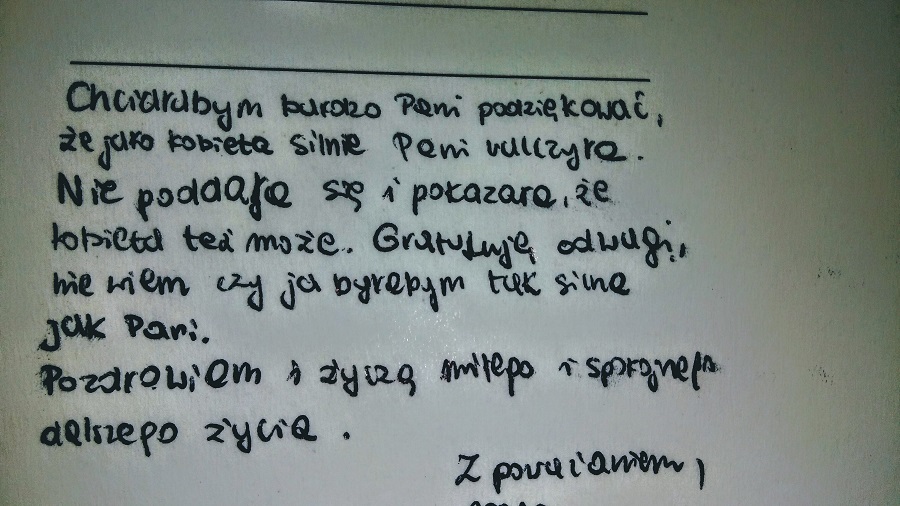 Chciałabym bardzo Pani podziękować,
że jako kobieta silnie Pani walczyła.
Nie poddała się i pokazała, że
kobieta też może. Gratuluję odwagi,
nie wiem czy ja byłabym tak silna
jak Pani.
Pozdrawiam i życzę miłego i spokojnego
dalszego życia.
Z poważaniem,